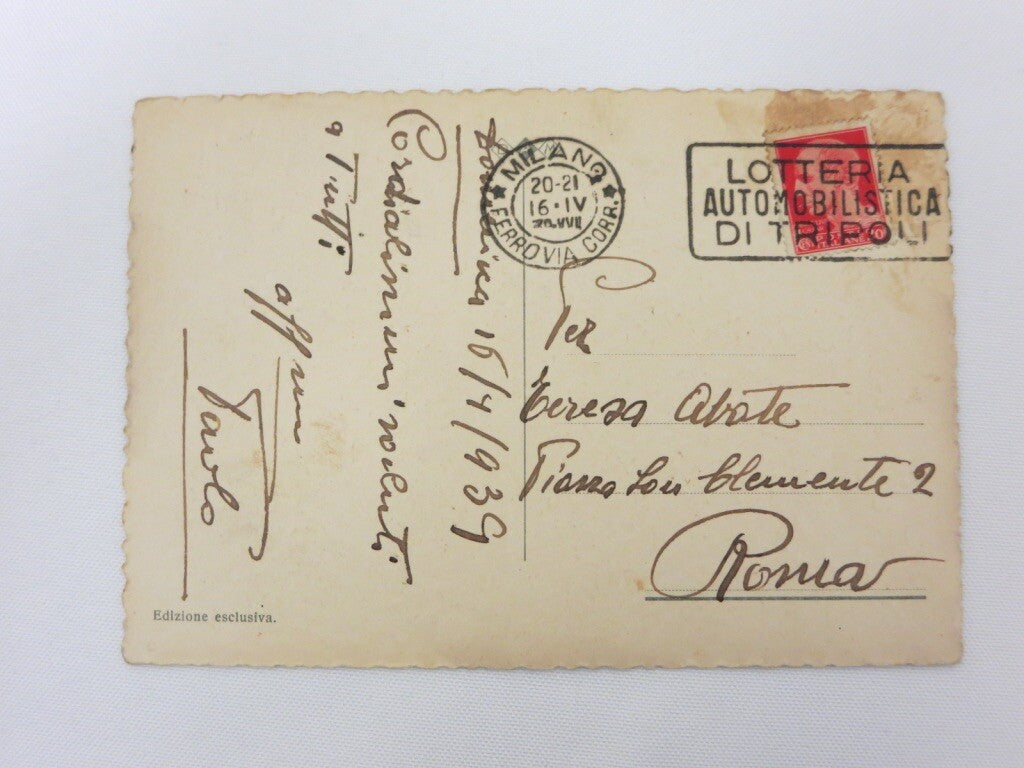 16/4/939
Cordialissimi saluti
a Tutti
aff.mo
Paolo
Edizione esclusiva.
★ MILANO ★
20-21
16·IV
FERROVIA CORR.
LOTTERIA
AUTOMOBILISTICA
DI TRIPOLI
Teresa Abate
Piazza San Clemente 2
Roma